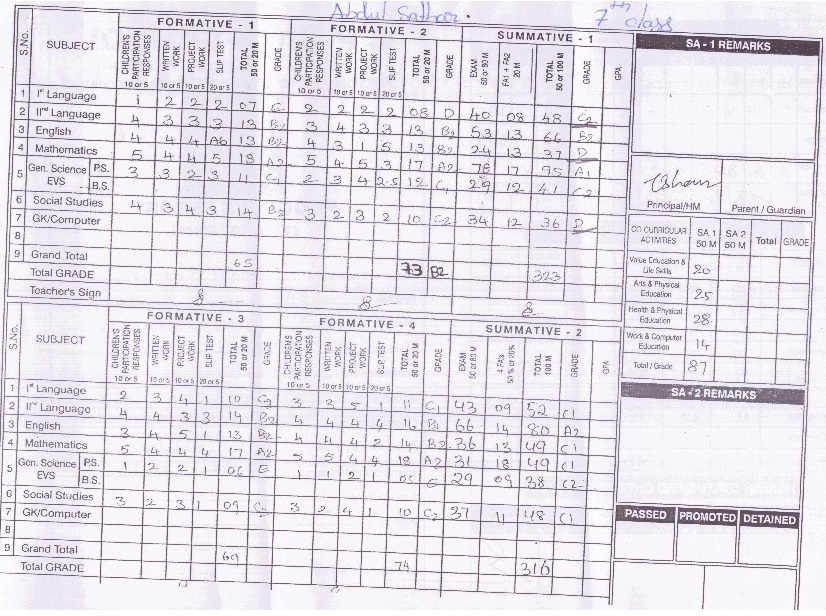 Abdul Sathar. 7th class
S.No. SUBJECT FORMATIVE - 1 FORMATIVE - 2 SUMMATIVE - 1
CHILDREN'S PARTICIPATION RESPONSES 10 or 5 WRITTEN WORK 10 or 5 PROJECT WORK 10 or 5 SLIP TEST 20 or 5 TOTAL 50 or 20 M GRADE CHILDREN'S PARTICIPATION RESPONSES 10 or 5 WRITTEN WORK 10 or 5 PROJECT WORK 10 or 5 SLIP TEST 20 or 5 TOTAL 50 or 20 M GRADE EXAM 50 or 80 M FA1 + FA2 20 M TOTAL 50 or 100 M GRADE GPA
1 Ist Language 1 2 2 2 07 2 2 2 2 08 D 40 08 48 C2
2 IInd Language 4 3 3 3 13 B2 3 4 3 3 13 B2 53 13 66 B2
3 English 4 4 4 Ab 13 B2 4 3 1 5 13 B2 24 13 37 D
4 Mathematics 5 4 4 5 18 A2 5 4 5 3 17 A2 78 17 95 A1
5 Gen. Science EVS P.S. B.S. 3 3 2 3 11 C1 2 3 4 2.5 12 C1 29 12 41 C2
6 Social Studies 4 3 4 3 14 B2 3 2 3 2 10 C2 34 12 36 D
7 GK/Computer
8
9 Grand Total 65 73 B2 323
Total GRADE
Teacher's Sign
SA - 1 REMARKS
Principal/HM Parent / Guardian
CO-CURRICULAR ACTIVITIES SA 1 50 M SA 2 50 M Total GRADE
Value Education & Life Skills 20
Arts & Physical Education 25
Health & Physical Education 28
Work & Computer Education 14
Total / Grade 87
S.No. SUBJECT FORMATIVE - 3 FORMATIVE - 4 SUMMATIVE - 2
CHILDREN'S PARTICIPATION RESPONSES 10 or 5 WRITTEN WORK 10 or 5 PROJECT WORK 10 or 5 SLIP TEST 20 or 5 TOTAL 50 or 20 M GRADE CHILDREN'S PARTICIPATION RESPONSES 10 or 5 WRITTEN WORK 10 or 5 PROJECT WORK 10 or 5 SLIP TEST 20 or 5 TOTAL 50 or 20 M GRADE EXAM 50 or 80 M + FA's 50 % or 20% TOTAL 100 M GRADE GPA
1 Ist Language 2 3 4 1 10 C2 3 2 5 1 11 C1 43 09 52 C1
2 IInd Language 4 4 3 3 14 B2 4 4 4 4 16 B1 66 14 80 A2
3 English 3 4 5 1 13 B2 4 4 4 2 14 B2 36 13 49 C1
4 Mathematics 5 4 4 4 17 A2 5 5 4 4 18 A2 31 18 49 C1
5 Gen. Science EVS P.S. B.S. 1 2 2 1 06 E 1 1 2 1 05 E 29 09 38 C2
6 Social Studies 3 2 3 1 09 C2 3 2 4 1 10 C2 37 11 48 C1
7 GK/Computer
8
9 Grand Total 69 74 316
Total GRADE
SA - 2 REMARKS
PASSED PROMOTED DETAINED